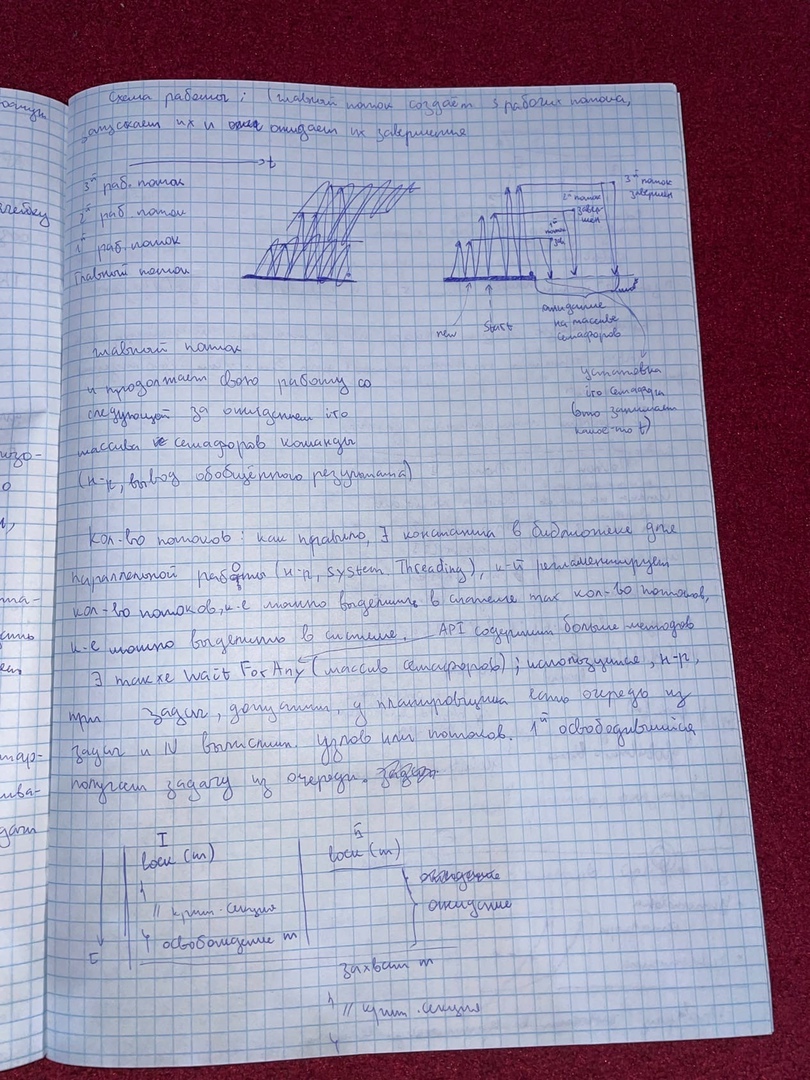 Схема работы: Главный поток создаёт 3 рабочих потока,
запускает их и ожидает их завершения
t
3й раб. поток
2й раб. поток
1й раб. поток
Главный поток
3й поток
завершен
2й поток
завер-
шен
1й
поток
зав.
new
Start
ожидание
на массиве
семафоров
установка
iго семафора
(это занимает
какое-то t)
главный поток
и продолжает свою работу со
следующей за ожиданием iго
массива семафоров команды
(н-р, вывод обобщённого результата)
Кол-во потоков: как правило, ∃ константа в библиотеке для
параллельной работы (н-р, System.Threading), к-й регламентирует
кол-во потоков, к-е можно выделить в системе max кол-во потоков,
к-е можно выделить в системе. API содержит больше методов
∃ также Wait For Any (массив семафоров); используется, н-р,
при задач, допустим, у планировщика есть очередь из
задач и N вычислит. узлов или потоков. 1й освободившийся
получает задачу из очереди.
I
lock (m)
{
// крит. секция
} освобождение m
t
II
lock (m)
ожидание
захват m
{
// крит. секция
}